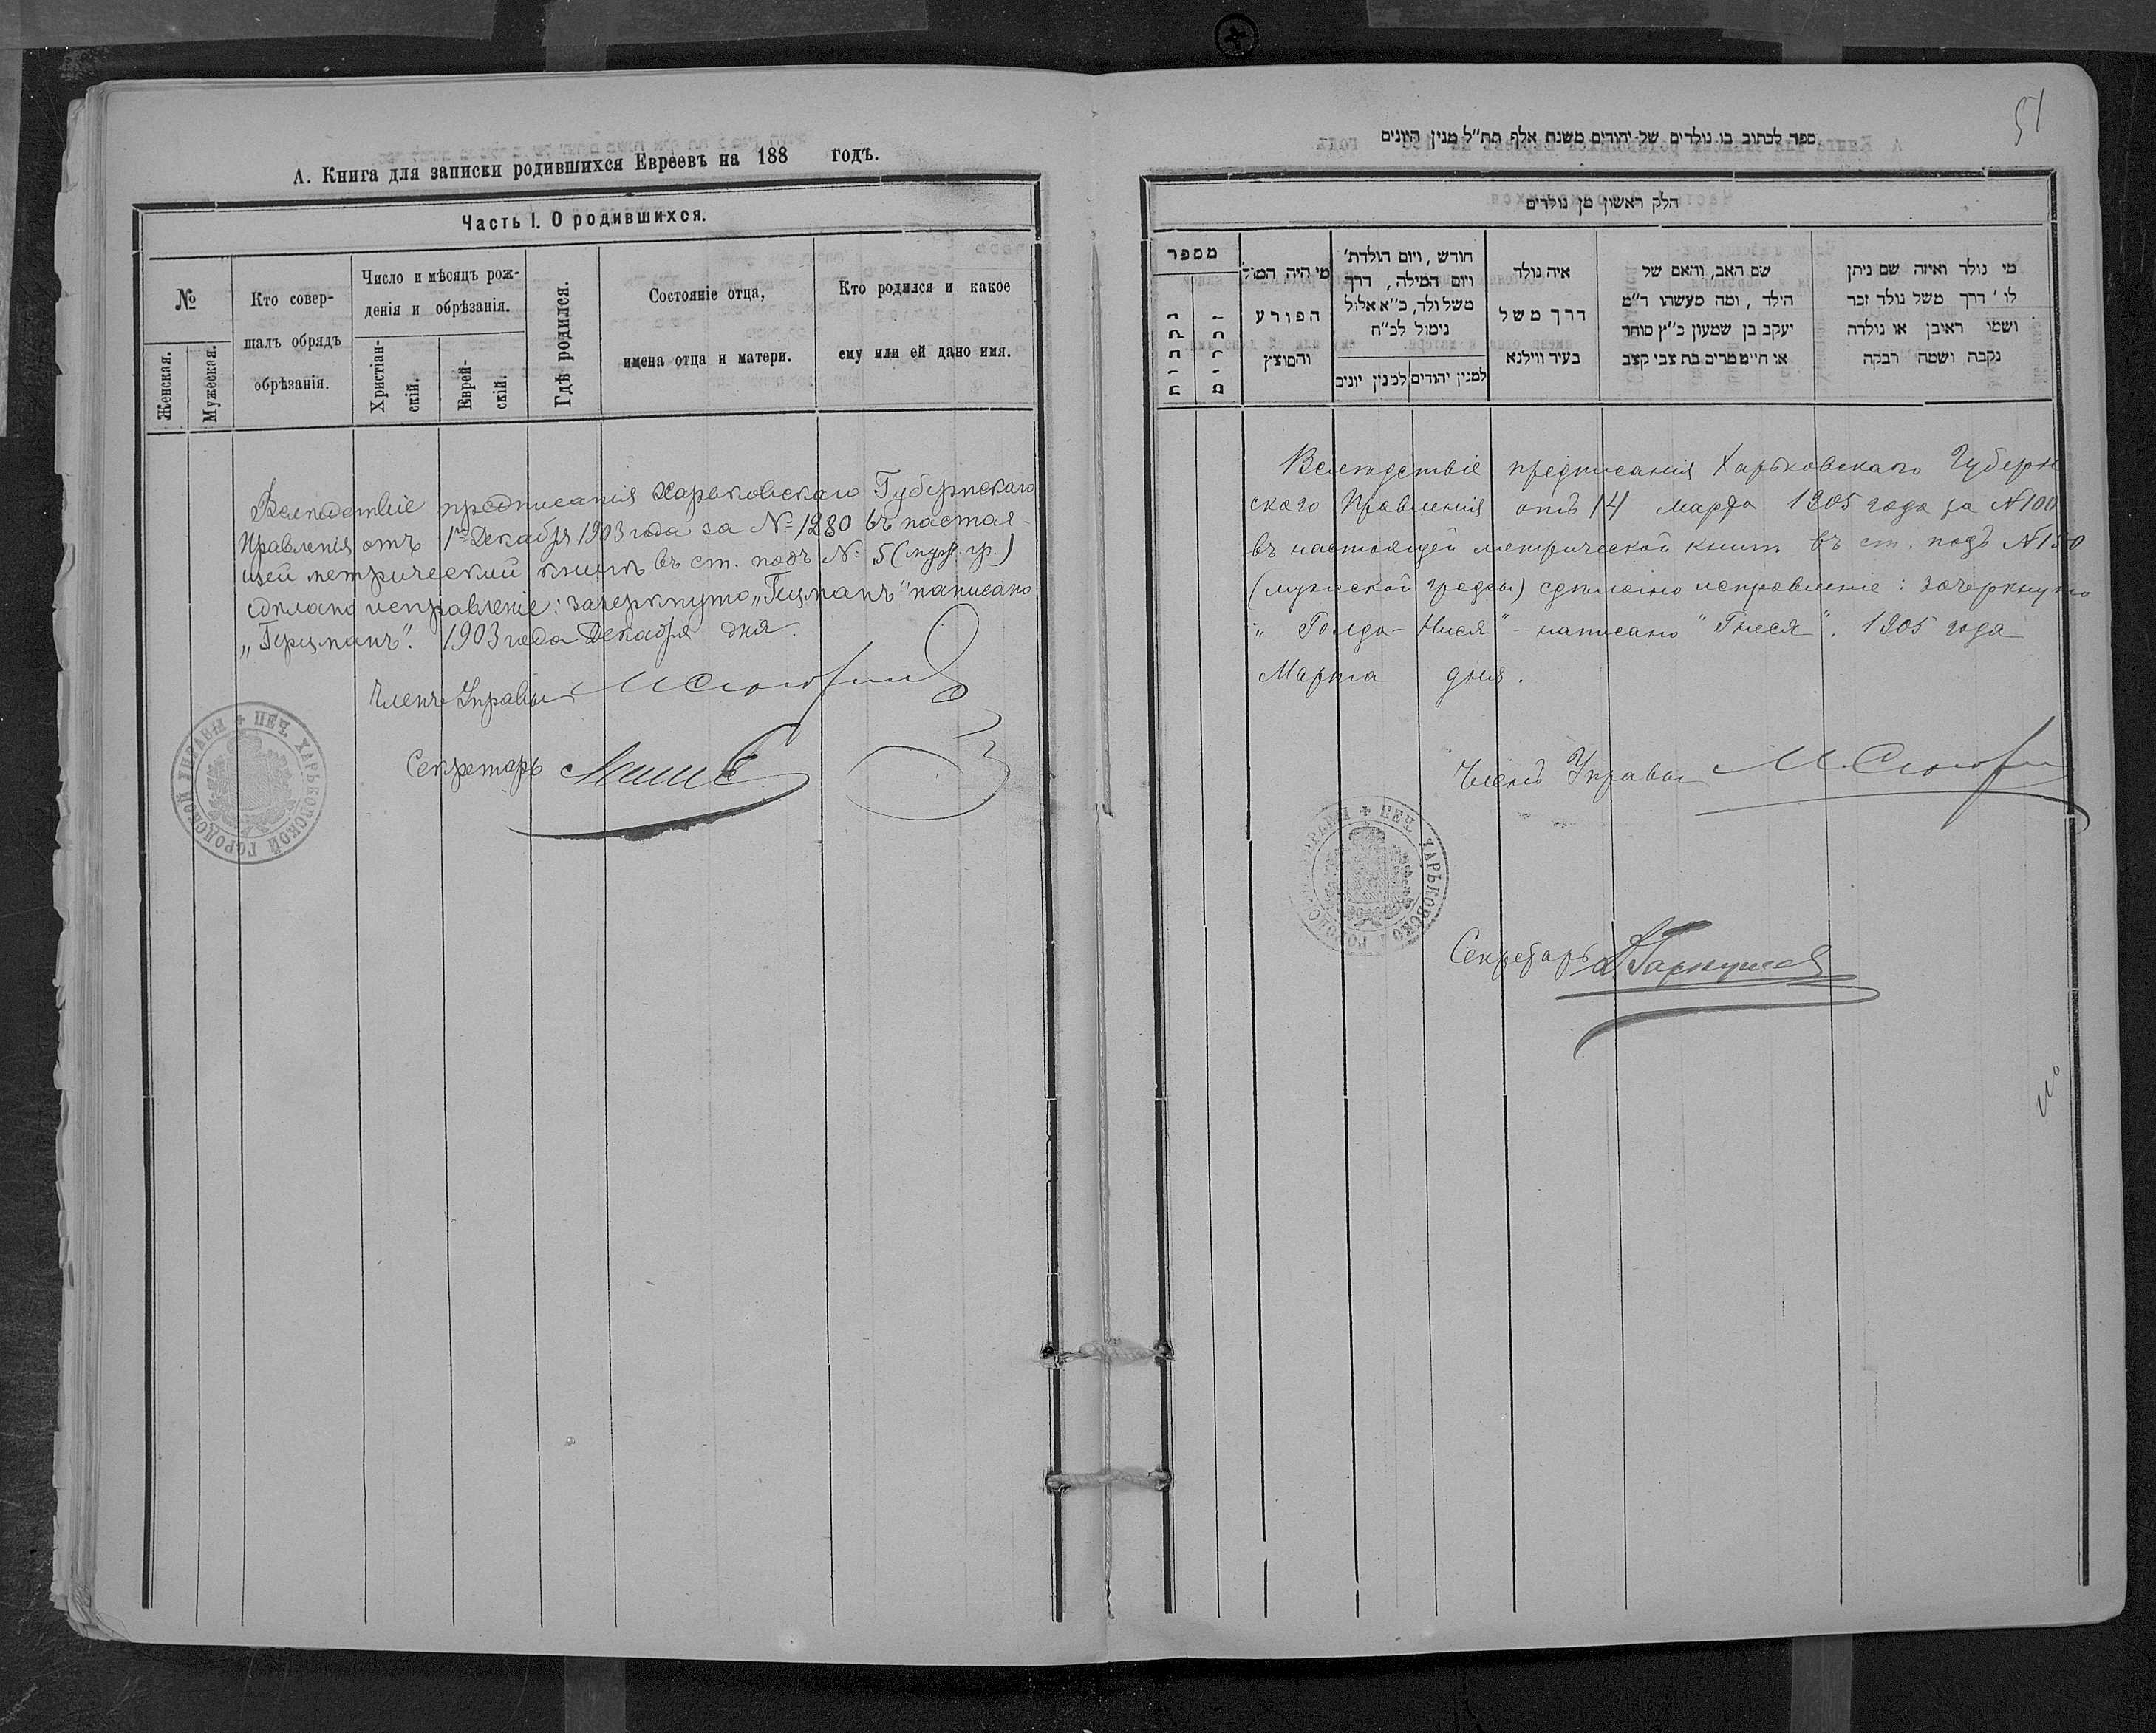 А. Книга для записки родившихся Евреевъ на 188 годъ.
Часть I. О родившихся.
№
Женская.
Мужеская.
Кто совер-
шалъ обрядъ
обрѣзанія.
Число и мѣсяцъ рож-
денія и обрѣзанія.
Христіан-
скій.
Еврей-
скій.
Гдѣ родился.
Состояніе отца,
имена отца и матери.
Кто родился и какое
ему или ей дано имя.
Вслѣдствіе предписанія Харьковскаго Губернскаго
Правленія отъ 1го Декабря 1903 года за № 1280 въ настоя-
щей метрической книгѣ въ ст. подъ № 5 (муж. гр.)
сдѣлано исправленіе: зачеркнуто „Гецманъ" написано
„Герцманъ". 1903 года Декабря дня.
Членъ Управы
Секретарь
ПЕЧ. ХАРЬКОВСКОЙ ГОРОДСКОЙ УПРАВЫ
51
ספר לכתוב בו נולדים של יהודים משנת אלף תת״ל מנין היונים
חלק ראשון מן נולדים
מספר
נקבית
זכרים
מי היה המול
הפורע
והמוצץ
חודש, ויום הולדת׳
ויום המילה, דרך
משל ולד, כ״א אלול
נימול לכ״ח
למנין יהודים
למנין יונים
איה נולד
דרך משל
בעיר ווילנא
שם האב, והאם של
הילד, ומה מעשהו ד״מ
יעקב בן שמעון כ״ץ סוחר
או חיים מרים בת צבי קצב
מי נולד ואיזה שם ניתן
לו ׳ דרך משל נולד זכר
ושמו ראובן או נולדה
נקבה ושמה רבקה
Вслѣдствіе предписанія Харьковскаго Губерн
скаго Правленія отъ 14 Марта 1905 года за №100
въ настоящей метрической книгѣ въ ст. подъ №150
(мужеской графы) сдѣлано исправленіе: зачеркнуто
„Голда-Нися" – написано „Гнеся". 1905 года
Марта дня.
Членъ Управы
ПЕЧ. ХАРЬКОВСКО ГОРОДС УПРАВЫ
Секретарь